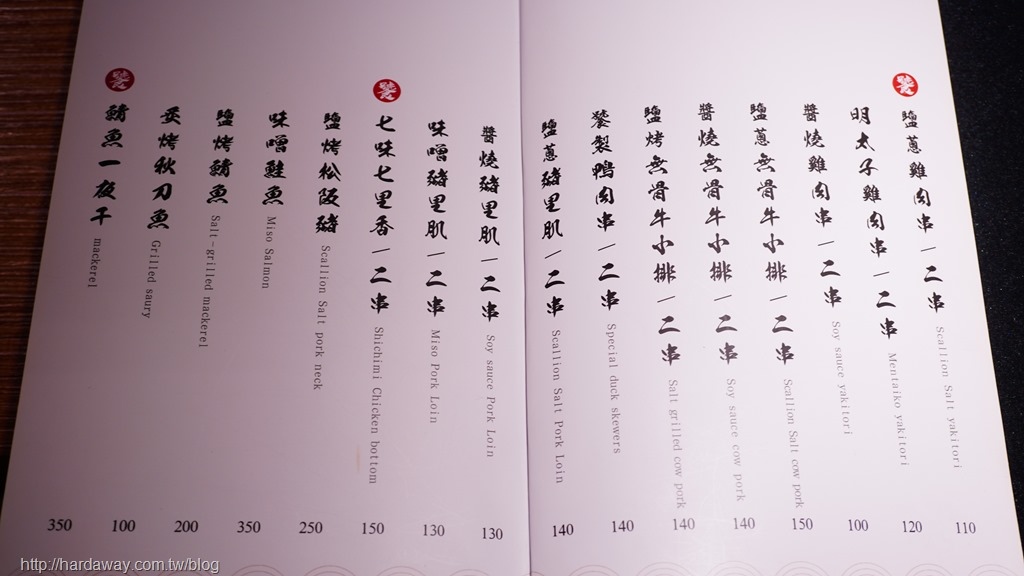 饕
鹽蔥雞肉串|二串 Scallion Salt yakitori 110
明太子雞肉串|二串 Mentaiko yakitori 120
醬燒雞肉串|二串 Soy sauce yakitori 100
鹽蔥無骨牛小排|二串 Scallion Salt cow pork 150
醬燒無骨牛小排|二串 Soy sauce cow pork 140
鹽烤無骨牛小排|二串 Salt grilled cow pork 140
饕製鴨肉串|二串 Special duck skewers 140
鹽蔥豬里肌|二串 Scallion Salt Pork Loin 140
醬燒豬里肌|二串 Soy sauce Pork Loin 130
味噌豬里肌|二串 Miso Pork Loin 130
饕
七味七里香|二串 Shichimi Chicken bottom 150
鹽烤松阪豬 Scallion Salt pork neck 250
味噌鮭魚 Miso Salmon 350
鹽烤鯖魚 Salt-grilled mackerel 200
炙烤秋刀魚 Grilled saury 100
饕
鯖魚一夜干 mackerel 350
http://hardaway.com.tw/blog